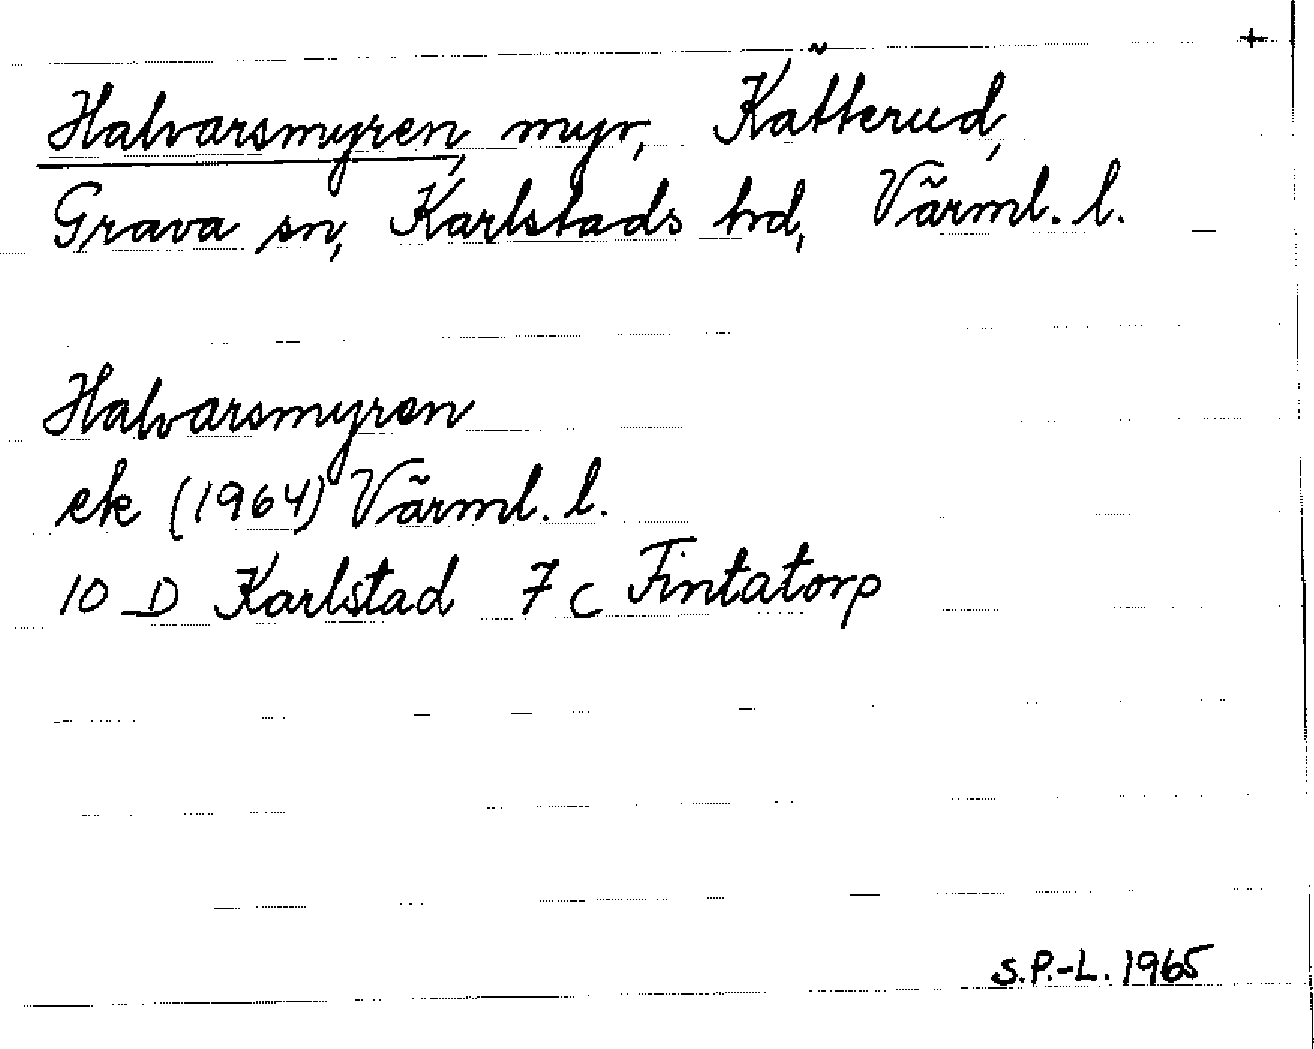 +
Halvarsmyren, myr, Kätterud,
Grava sn, Karlstads hd, Värml. l.
Halvarsmyren
ek (1964) Värml. l.
10 D Karlstad 7 c Fintatorp
S.P.-L. 1965